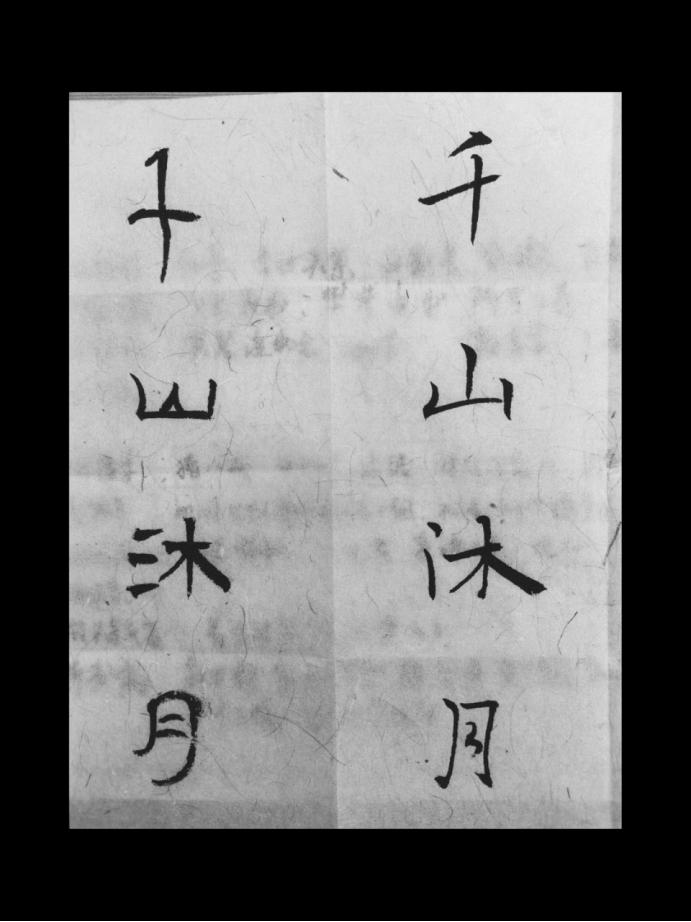 千山沐月
千山沐月